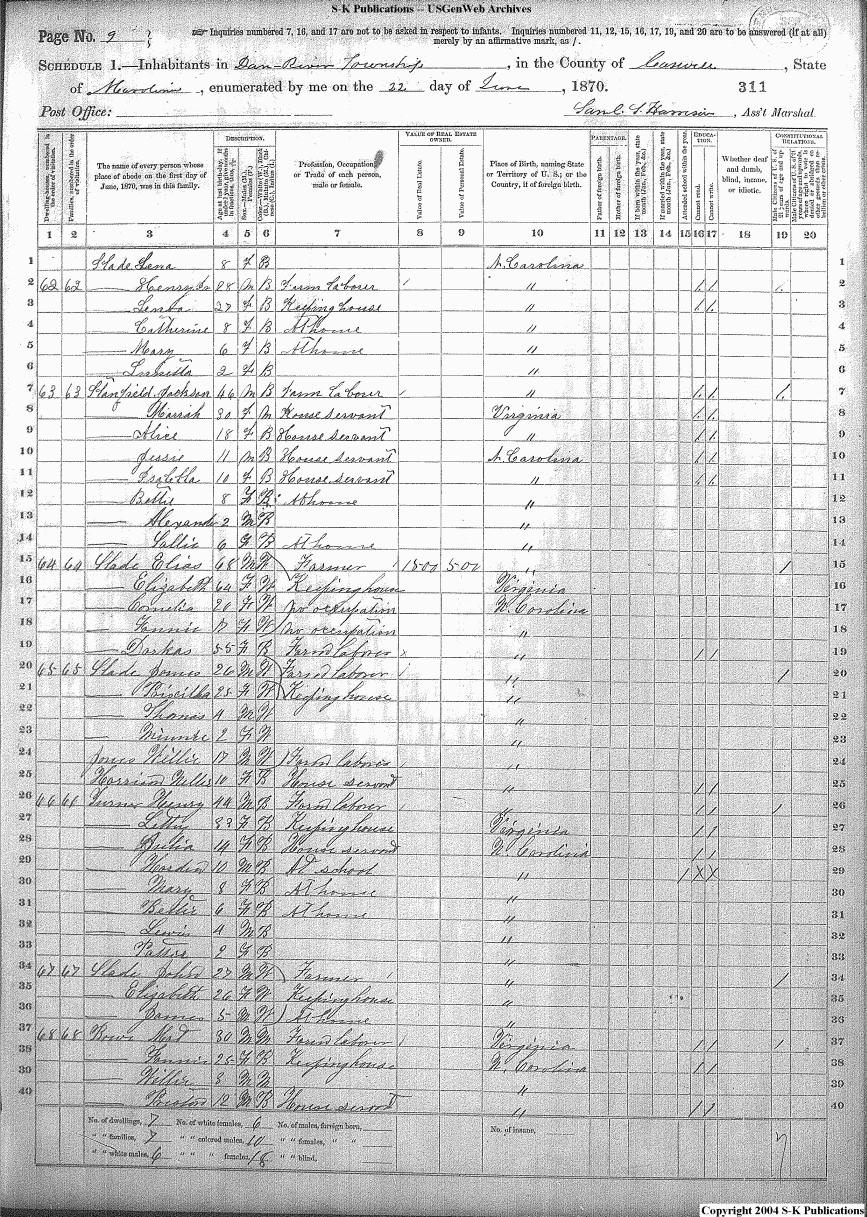 S-K Publications -- USGenWeb Archives
Page No. 9
Inquiries numbered 7, 16, and 17 are not to be asked in respect to infants. Inquiries numbered 11, 12, 15, 16, 17, 19, and 20 are to be answered (if at all) merely by an affirmative mark, as /.
Schedule 1.—Inhabitants in Dan River Township, in the County of Caswell, State
of N Carolina, enumerated by me on the 22 day of June, 1870. 311
Post Office: Saml. S. Harrison, Ass't Marshal.
Dwelling-houses, numbered in the order of visitation.
Families, numbered in the order of visitation.
The name of every person whose place of abode on the first day of June, 1870, was in this family.
Description.
Profession, Occupation, or Trade of each person, male or female.
Value of Real Estate owned.
Value of Real Estate.
Value of Personal Estate.
Place of Birth, naming State or Territory of U. S.; or the Country, if of foreign birth.
Parentage.
Father of foreign birth.
Mother of foreign birth.
If born within the year, state month (Jan., Feb., &c.)
If married within the year, state month (Jan., Feb., &c.)
Attended school within the year.
Education.
Cannot read.
Cannot write.
Whether deaf and dumb, blind, insane, or idiotic.
Constitutional Relations.
1 2 3 4 5 6 7 8 9 10 11 12 13 14 15 16 17 18 19 20
1 Slade Lena 8 F B N. Carolina 1
2 62 62 — Henry 28 M B Farm laborer " / / / 2
3 — 27 F B Keeping house " / / 3
4 — Catherine 8 F B At home " 4
5 — Mary 6 F B At home " 5
6 — 2 F B " 6
7 63 63 Stanfield Jackson 46 M B Farm laborer " / / / 7
8 — 30 F M House servant Virginia / / 8
9 — Alice 18 F B House servant " / / 9
10 — Jessie 11 M B House servant N. Carolina / / 10
11 — Isabella 10 F B House servant " / / 11
12 — Bettie 8 F B At home " 12
13 — Alexande 2 M B " 13
14 — Sallie 6 F B At home " 14
15 64 64 Slade Elias 68 M W Farmer 1500 500 " / 15
16 — Elizabeth 64 F W Keeping house Virginia 16
17 — Cornelia 20 F W No occupation N. Carolina 17
18 — Fannie 17 F W No occupation " 18
19 — Darkas 55 F B Farm laborer " / / 19
20 65 65 Slade James 26 M W Farm laborer " / 20
21 — Priscilla 25 F W Keeping house " 21
22 — Thomas 4 M W " 22
23 — Minnie 2 F W " 23
24 Jones Willie 17 M W Farm laborer " 24
25 Harrison Millie 10 F B House servant " / / 25
26 66 66 Turner Henry 44 M B Farm laborer " / / / 26
27 — Letty 33 F B Keeping house Virginia / / 27
28 — Julia 14 F B House servant N. Carolina / / 28
29 — 10 M B At school " / X X 29
30 — Mary 8 F B At home " 30
31 — Bettie 6 F B At home " 31
32 — Lewis 4 M B " 32
33 — 2 F B " 33
34 67 67 Slade John 27 M W Farmer " / 34
35 — Elizabeth 26 F W Keeping house " 35
36 — James 5 M W At home " 36
37 68 68 Bowe Mat 30 M M Farm laborer Virginia / / / 37
38 — Fannie 25 F B Keeping house N. Carolina / / 38
39 — Willie 3 M M " 39
40 — 12 M B House servant " / / 40
No. of dwellings, 7 No. of white females, 6 No. of males, foreign born, No. of insane,
" " families, 7 " " colored males, 10 " " females, " " 7
" " white males, 6 " " " females, 18 " " blind,
Copyright 2004 S-K Publications